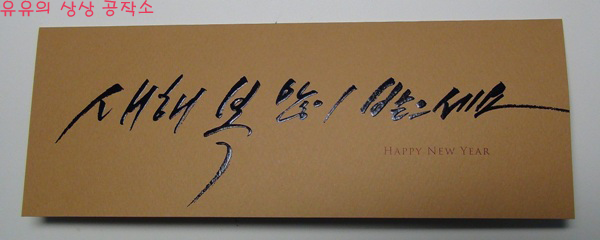 유유의 상상 공작소
새해 복 많이 받으세요
HAPPY NEW YEAR